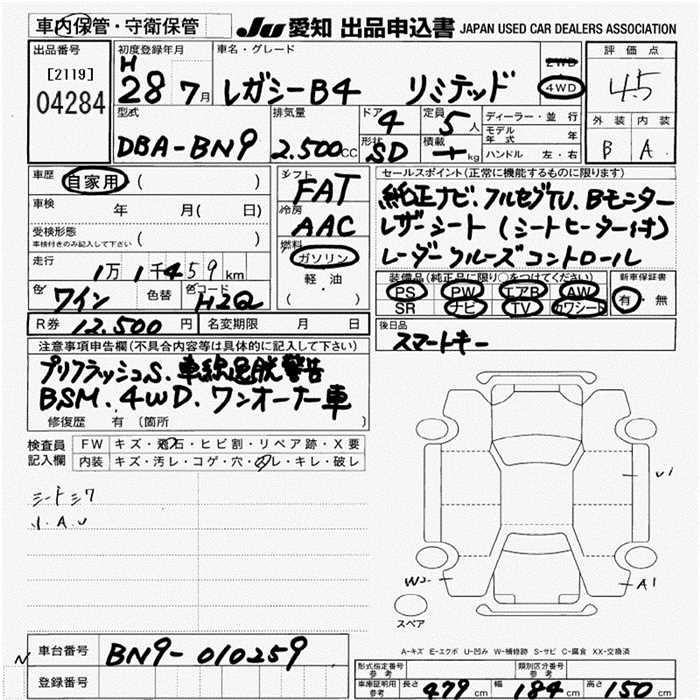 車内保管・守衛保管
JU 愛知 出品申込書 JAPAN USED CAR DEALERS ASSOCIATION
出品番号
[2119]
04284
初度登録年月
H
28 7月
車名・グレード
レガシーB4 リミテッド
2WD
4WD
評価点
4.5
型式
DBA-BN9
排気量
2.500cc
ドア
4
形状
SD
定員
5人
積載
kg
ディーラー・並行
モデル年式 年
ハンドル 左・右
外装 内装
B A
車歴 自家用 ( )
車検 年 月( 日)
受検形態
車検付きのみ記入して下さい ( )
走行
1万 1千459km
色 ワイン
色替
色コード H2Q
R券 12.500円
名変期限 月 日
シフト
FAT
冷房
AAC
燃料
ガソリン
軽油
( )
セールスポイント(正常に機能するものに限ります)
純正ナビ、フルセグTV、Bモニター
レザーシート (シートヒーター付)
レーダークルーズコントロール
装備品(純正品に限り○をつけてください)
PS・PW・エアB・AW
SR ナビ・TV・カワシート
新車保証書
有・無
後日品
スマートキー
注意事項申告欄(不具合内容等は具体的に記入して下さい)
プリクラッシュS、車線逸脱警告
BSM、4WD、ワンオーナー車
修復歴 有 (箇所 )
検査員記入欄
FW キズ・飛石・ヒビ割・リペア跡・X要
内装 キズ・汚レ・コゲ・穴・スレ・キレ・破レ
シートシワ
小A.U
U1
W2
A1
スペア
A-キズ E-エクボ U-凹み W-補修跡 S-サビ C-腐食 XX-交換済
N
車台番号 BN9-010259
登録番号
形式指定番号 参考
類別区分番号 参考
車庫証明用 参考 長さ 479cm 幅 184cm 高さ 150cm